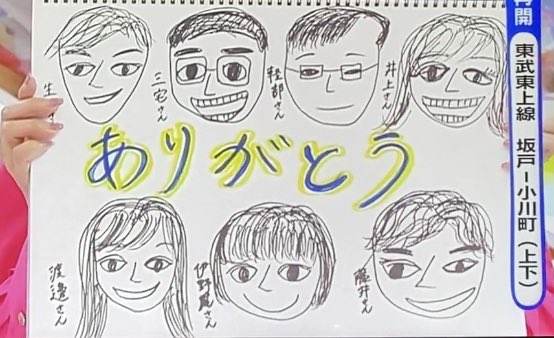 三宅さん
軽部さん
井上さん
ありがとう
渡邊さん
伊野尾さん
藤井さん
再開
東武東上線 坂戸ー小川町(上下)